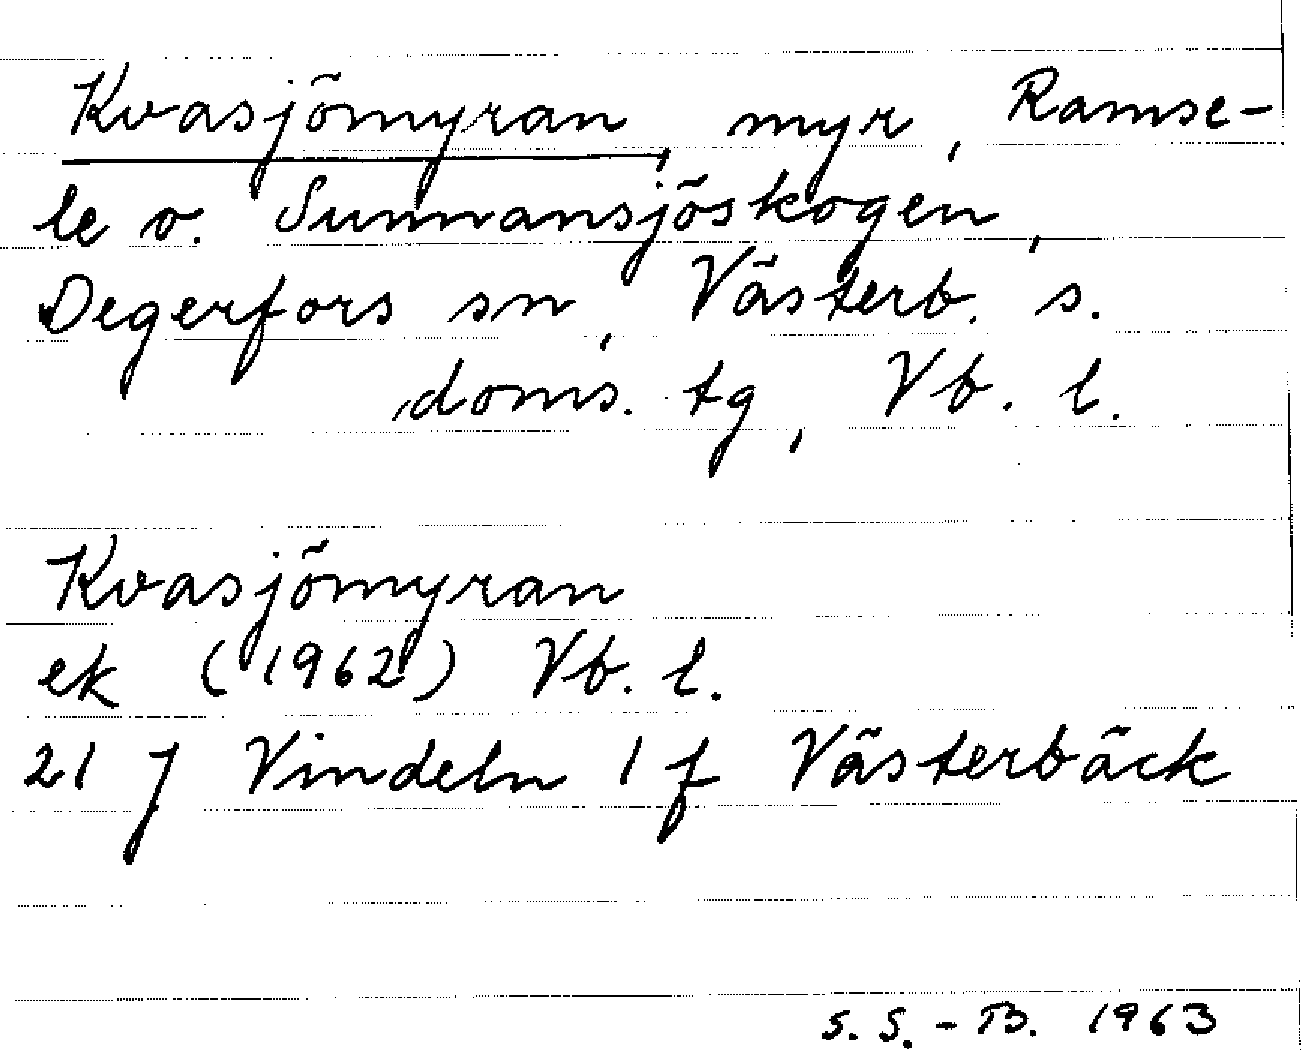 Kvasjömyran, myr, Ramse-
le o. Sunnansjöskogen,
Degerfors sn, Västerb. s.
doms. tg, Vb. l.
Kvasjömyran
ek (1962) Vb. l.
21 J Vindeln 1 f Västerbäck
S. S. - B. 1963